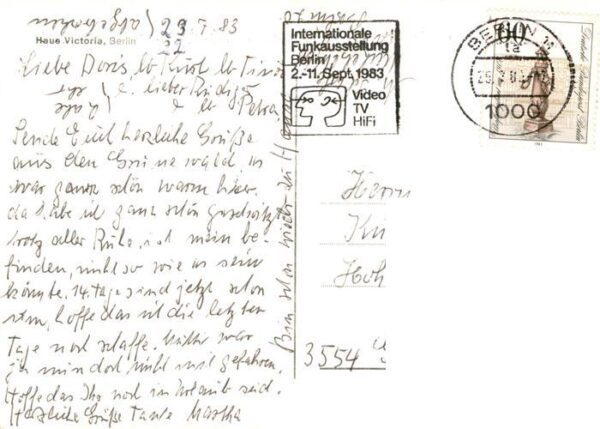 23.7.83
22
Haus Victoria, Berlin
Liebe Doris lb Knut lb Timo
u. lieber Rüdiger
u lb Petra
Sende Euch herzliche Grüße
aus den Grunewald
war ganz schön warm hier.
da habe ich ganz schön geschwitzt
trotz aller Ruhe, ist mein be-
finden, nicht so wie es sein
könnte. 14. Tage sind jetzt schon
rum, hoffe das ich die letzten
Tage noch schaffe. war
ja nun doch nicht mit gefahren.
Hoffe das Ihr noch in Urlaub seid.
Herzliche Grüße Tante Martha
Bin schon wieder zu
Internationale
Funkausstellung
Berlin
2.-11. Sept. 1983
Video
TV
HiFi
BERLIN
1000
60
Deutsche Bundespost Berlin
Herrn
Kn
Hoh
3554